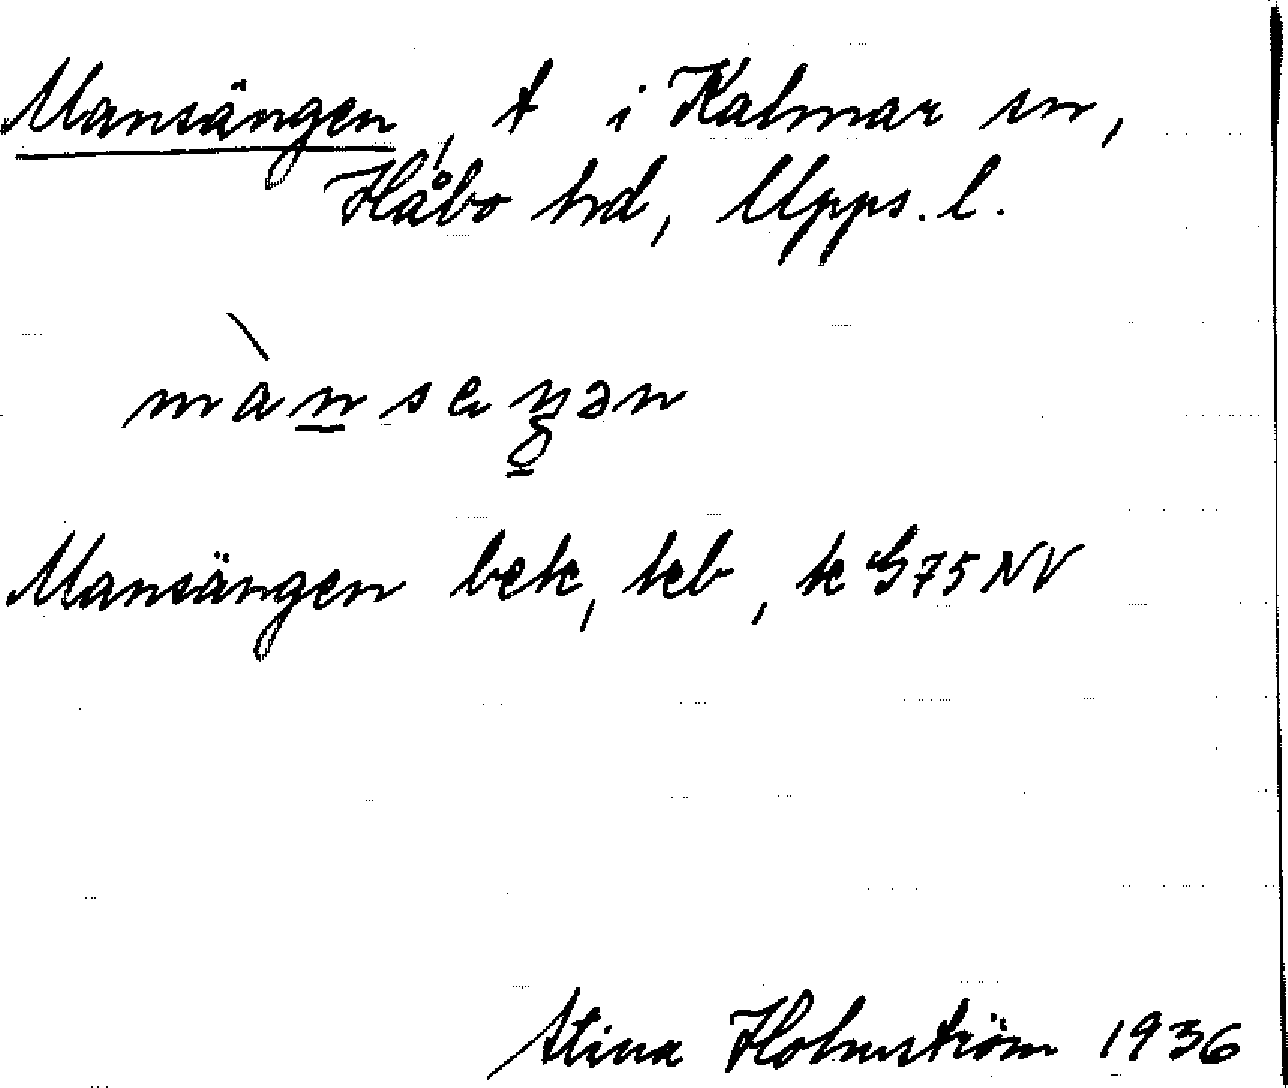 Mansängen, t i Kalmar sn,
Håbo hd, Upps. l.
Mansängen bek, keb, k G75NV
Stina Holmström 1936